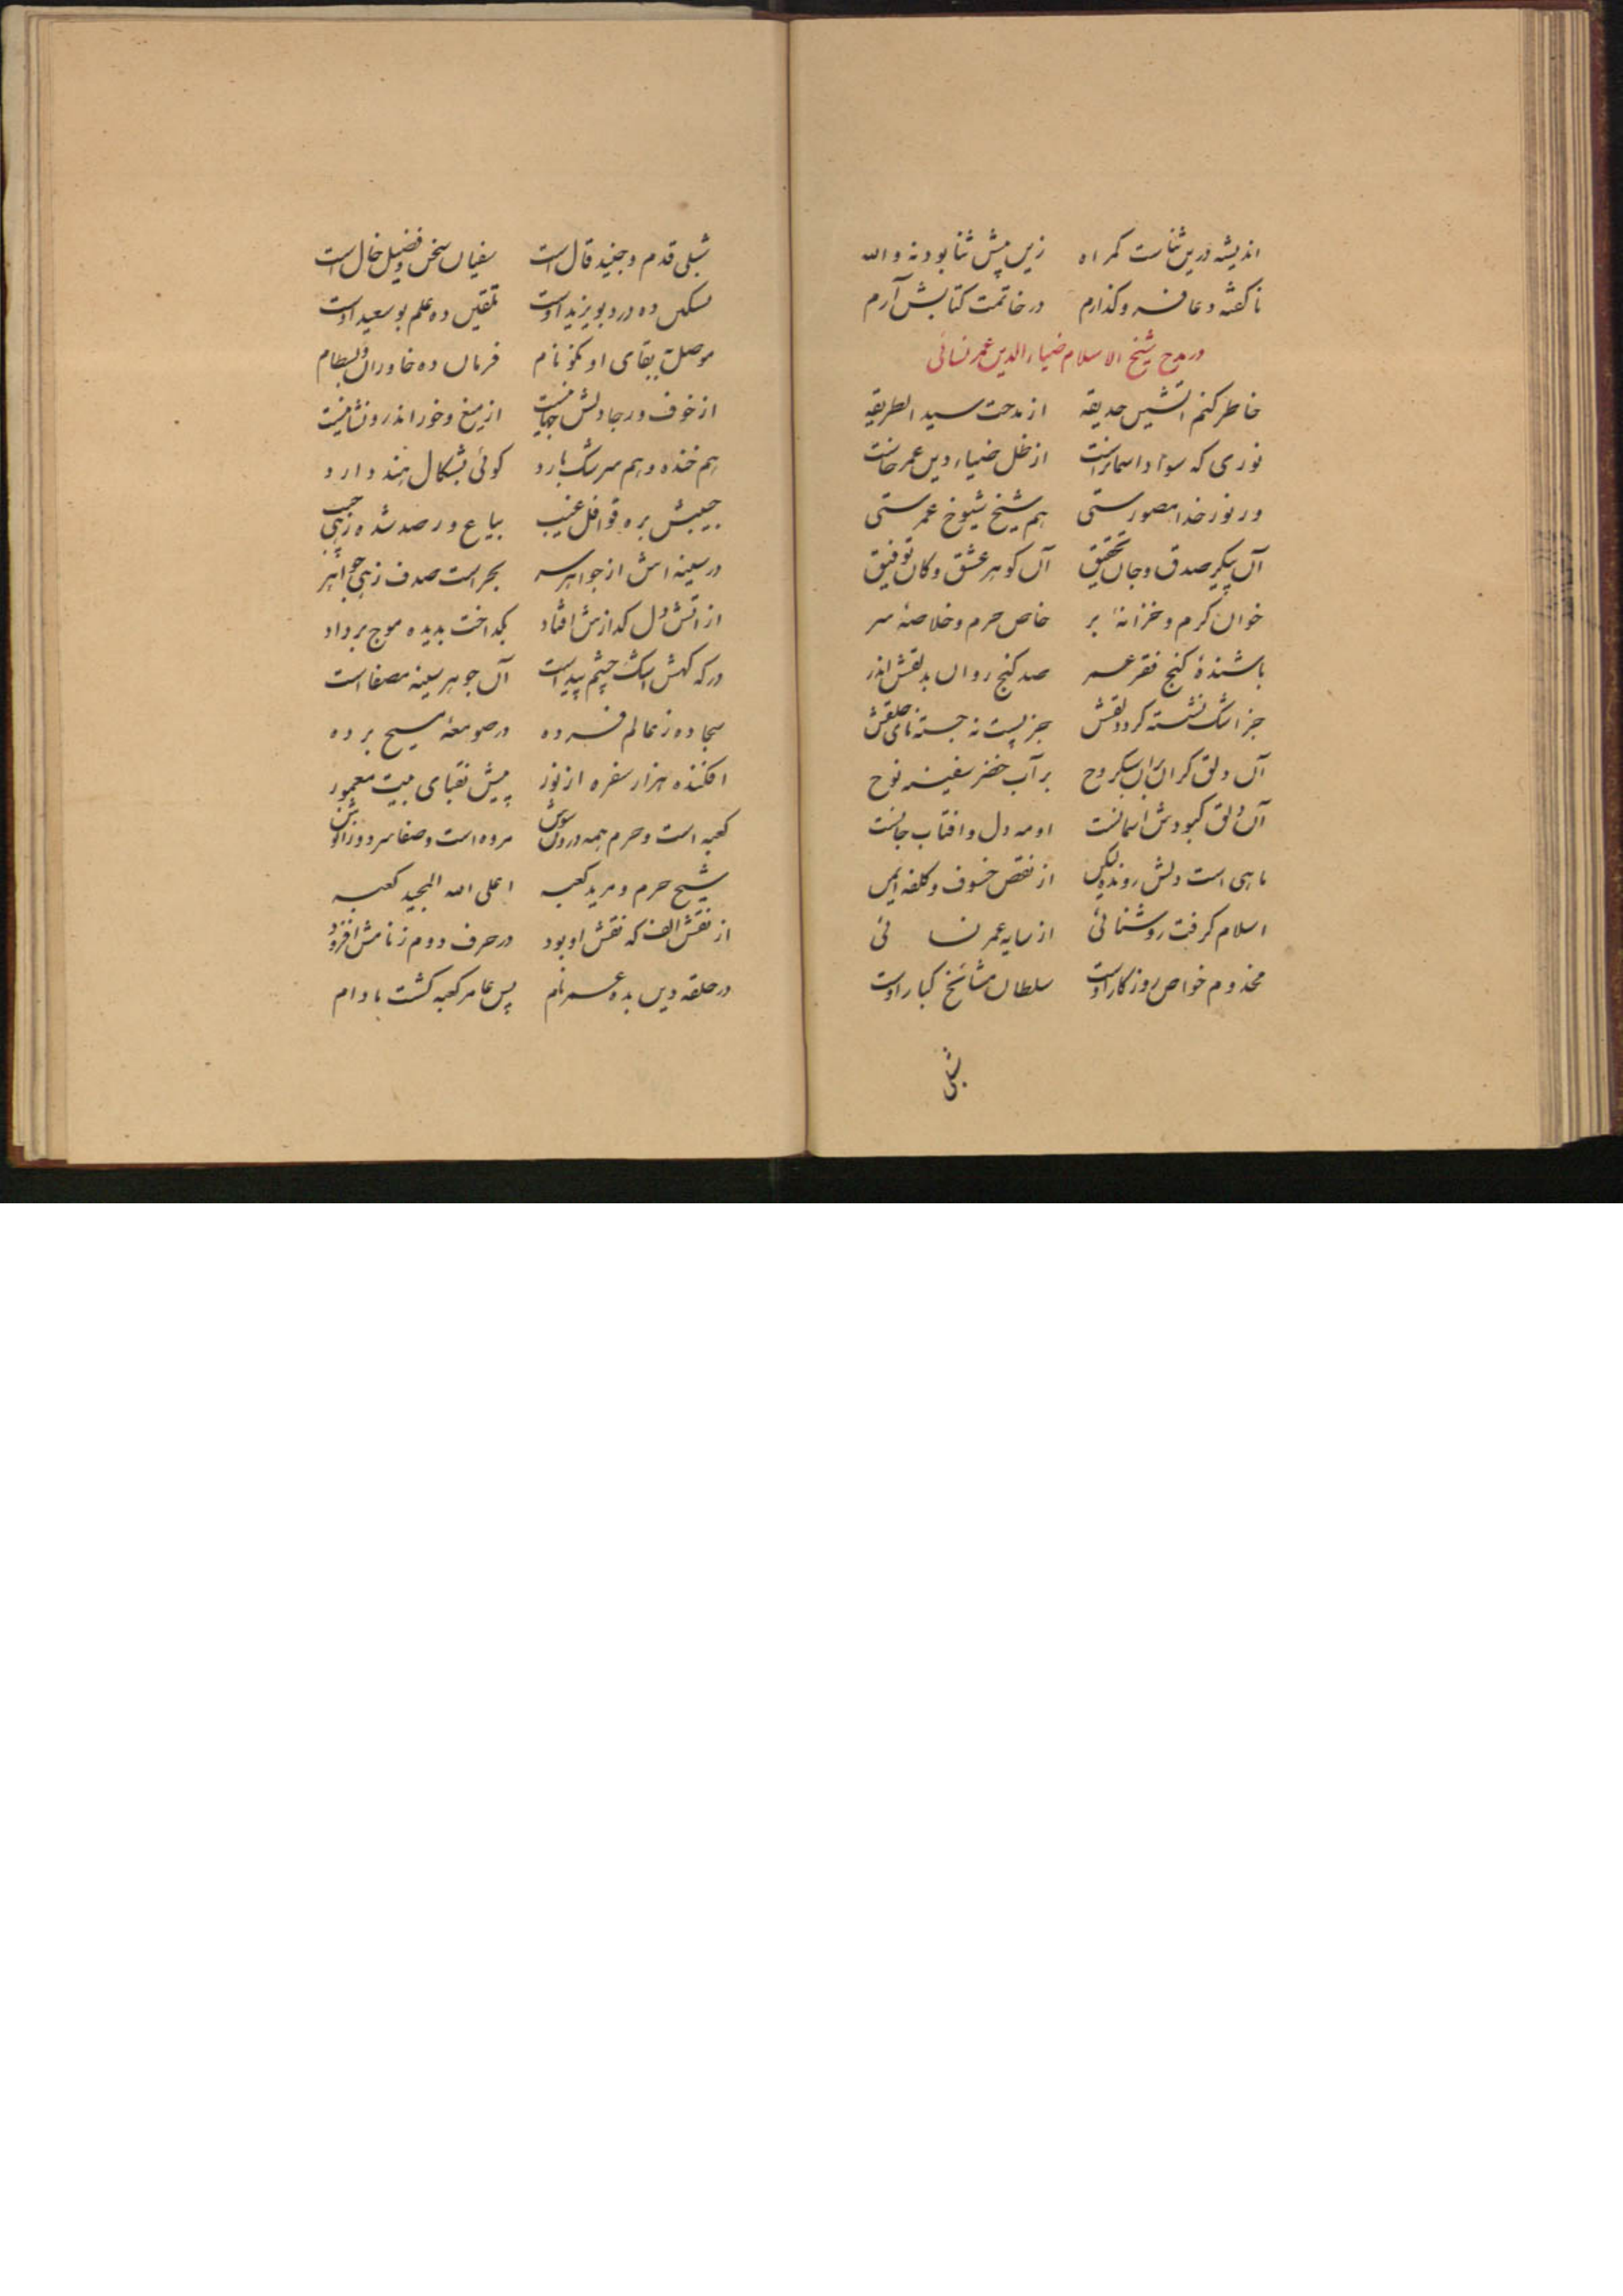 اندیشه درین ثناست کمراه زین پیش ثنا بود نه والله
ناکفته دعا فرو کذارم در خاتمت کتابش آرم
در مدح شیخ الاسلام ضیاء الدین عمر نسائی
خاطر کنم آتشین حدیقه از مدحت سید الطریقه
نوری که سواد آسمانراست از ظل ضیاء دین عمر خاست
ور نور خدا مصورستی هم شیخ شیوخ عمرستی
آن پیکر صدق و جان تحقیق آن کوهر عشق و کان توفیق
خوان کرم و خزانهٔ بر خاص حرم و خلاصهٔ سر
باشندهٔ کنج فقر عمر صد کنج روان بدلقش اندر
جز اشک نشسته کرد دلقش جز پست نه جسته نای حلقش
آن دلق کران بران سبکروح بر آب خضر سفینه نوح
آن دلق کبودش آسمانست او مه دل و آفتاب جانست
ماهی است دلش رونده لیکن از نقص خسوف و کلفه ایمن
اسلام کرفت روشنائی از سایه عمر نسائی
مخدوم خواص روزکار اوست سلطان مشائخ کبار اوست
شبلی
شبلی قدم و جنید قال است سفیان سخن و فضیل خال است
تسکین ده درد بویزید اوست تلقین ده علم بوسعید اوست
موصل ببقای او نکو نام فرمان ده خاوران و بسطام
از خوف و رجا دلش جهانیست از میغ و خور اندرو نشانیست
هم خنده و هم سرشک بارد کوئی بشکال هند دارد
جیبش بره قوافل غیب بیاع و رصد شده زهی جیب
در سینه اش از جواهر سر بحر است صدف زهی جواهر
از آتش دل کدازش افتاد بکداخت بدیده موج برداد
در که کهش اشک چشم پیداست آن جوهر سینه مصفاست
سجاده ز عالم فسرده در صومعهٔ مسیح برده
افکنده هزار سفره از نور پیش نقبای بیت معمور
کعبه است و حرم همه درون سوش مروه است و صفا سر دو زانوش
شیخ حرم و مرید کعبه اعلی الله المجید کعبه
از نقش الف که نقش او بود در حرف دوم ز نامش افزود
در حلقه دین بده عمر نام پس عامر کعبه کشت مادام